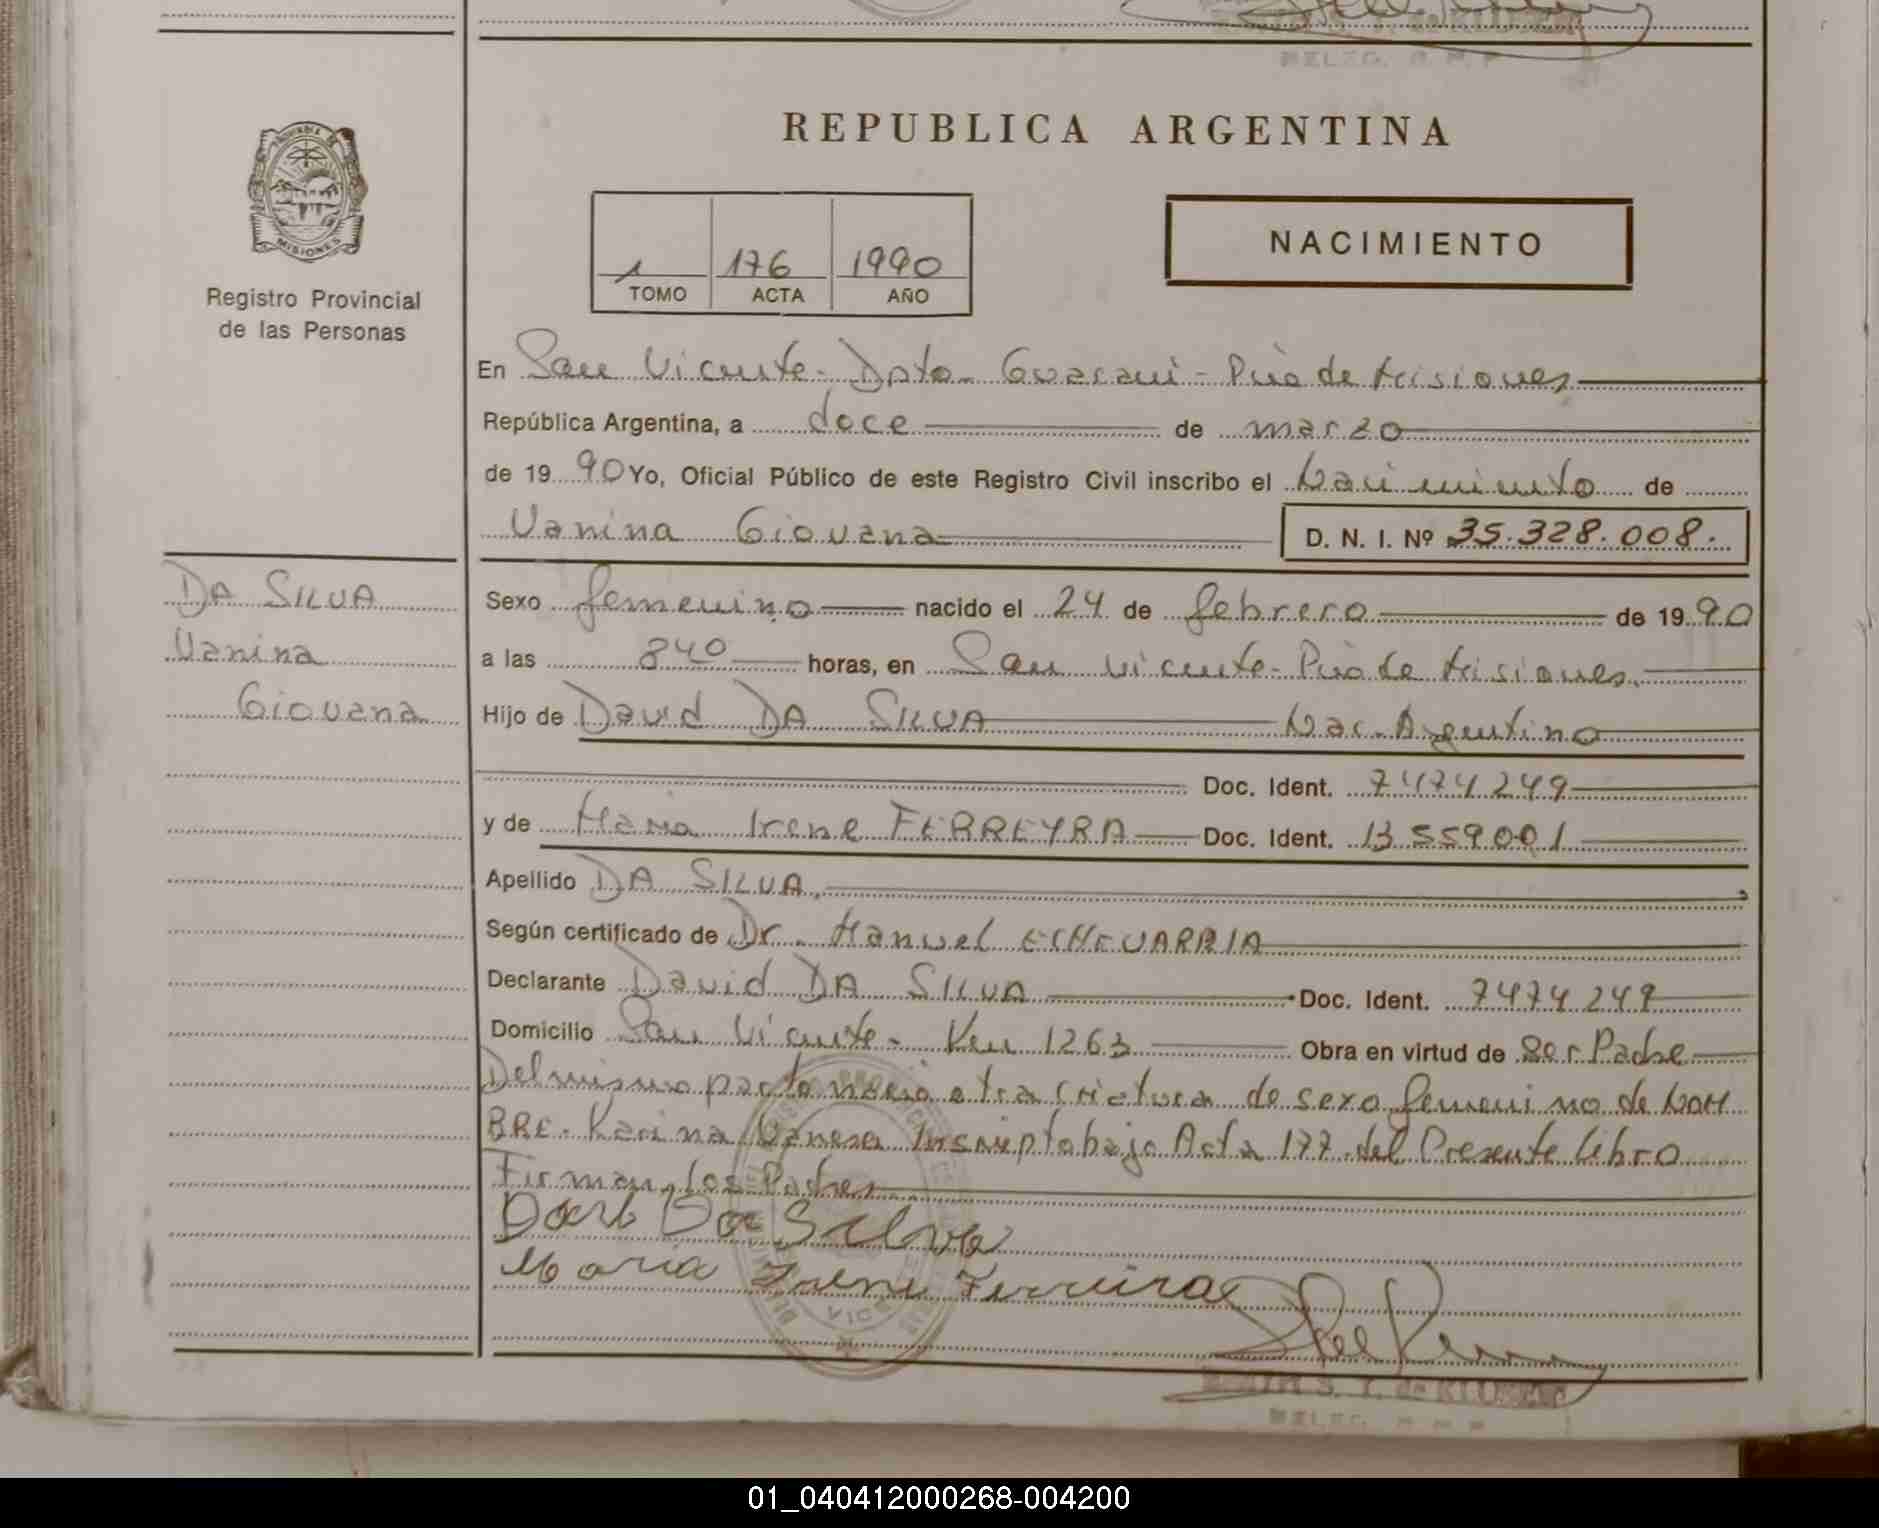 REPUBLICA ARGENTINA
MISIONES
Registro Provincial
de las Personas
1 176 1990
TOMO ACTA AÑO
NACIMIENTO
En San Vicente - Dpto - Guarani - Pcia de Misiones
República Argentina, a doce de marzo
de 1990 Yo, Oficial Público de este Registro Civil inscribo el Nacimiento de
Vanina Giovana D. N. I. Nº 35.328.008.
DA SILVA
Vanina
Giovana
Sexo femenino nacido el 24 de febrero de 1990
a las 840 horas, en San Vicente - Pcia de Misiones.
Hijo de David DA SILVA Nac. Argentino
Doc. Ident. 7474249
y de Maria Irene FERREYRA Doc. Ident. 13559001
Apellido DA SILVA
Según certificado de Dr. Manuel ECHEVARRIA
Declarante David DA SILVA Doc. Ident. 7474249
Domicilio San Vicente - Km 1263 Obra en virtud de Ser Padre
Del mismo parto nacio otra criatura de sexo femenino de NOM
BRE. Karina Vanesa Inscripto bajo Acta 177 del Presente libro
Firman los Padres
Da Silva
Maria Irene Ferreira
DE KLUZAK
DELEG. R. P. P.
01_040412000268-004200